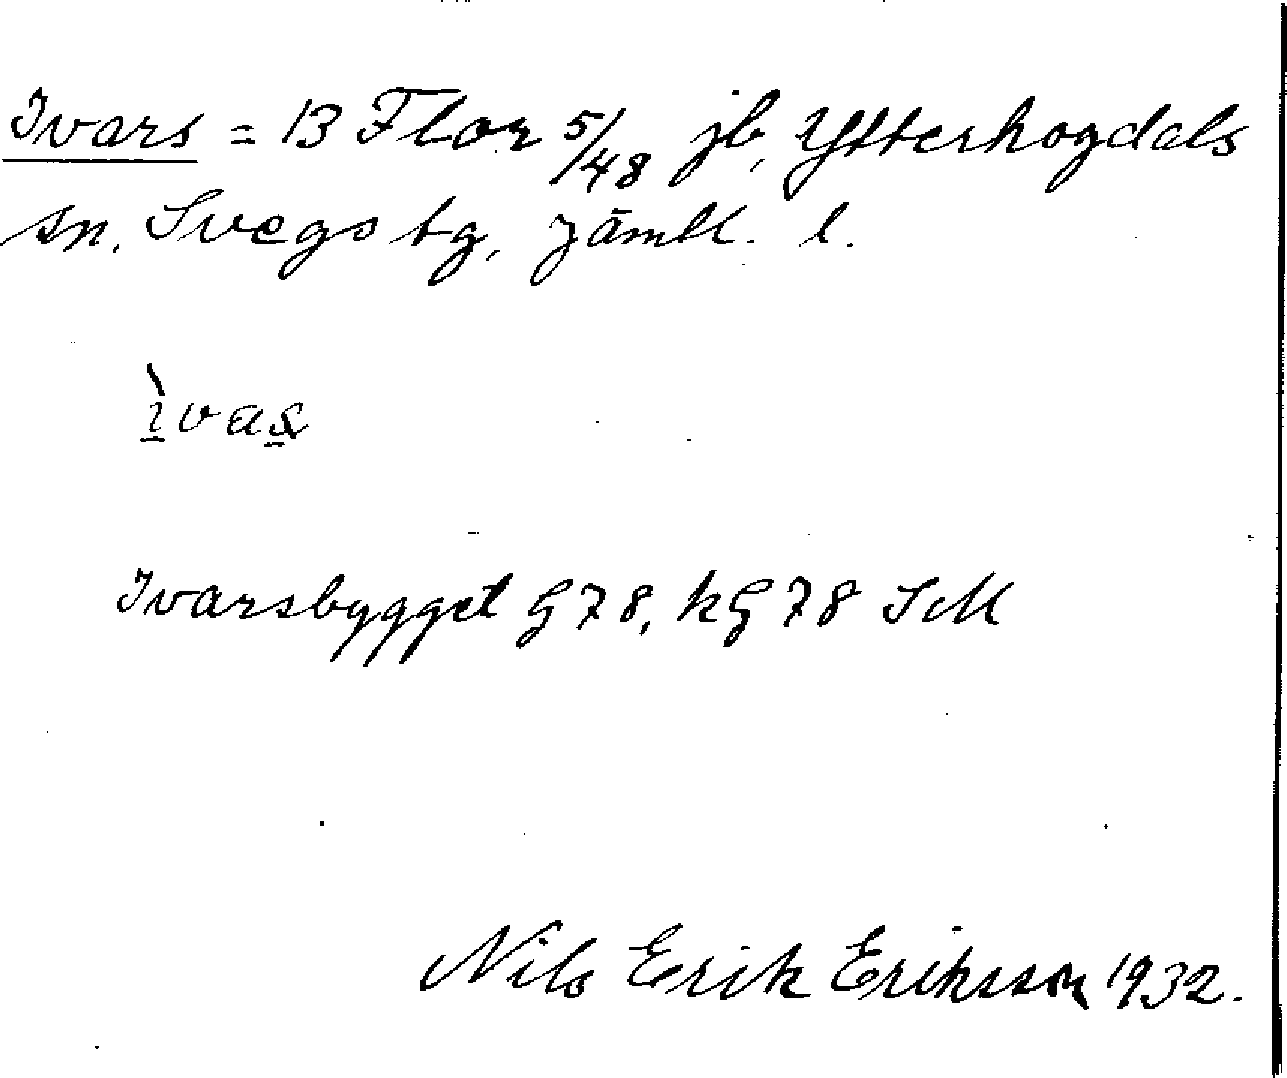 Ivars = 13 Flor 5/48 jb, Ytterhogdals
sn. Svegs tg, Jämtl. l.
ìvas̠
Ivarsbygget G 78, kG 78 SM
Nils Erik Eriksson 1932.